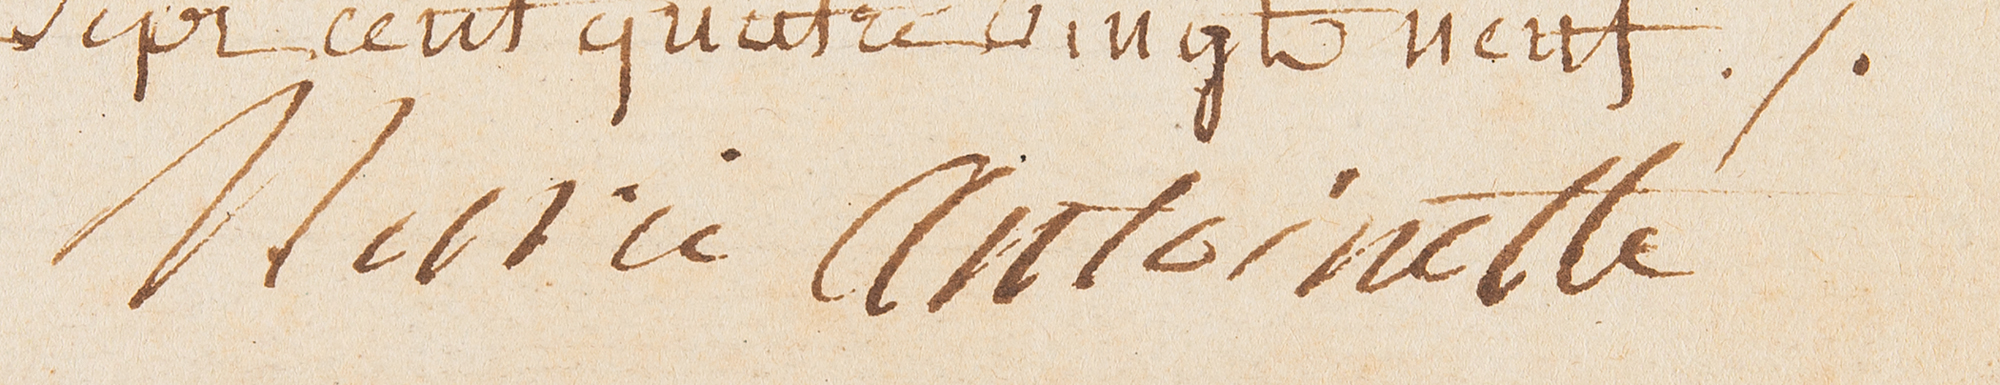 Sept cent quatre vingt neuf ./.
Marie Antoinette